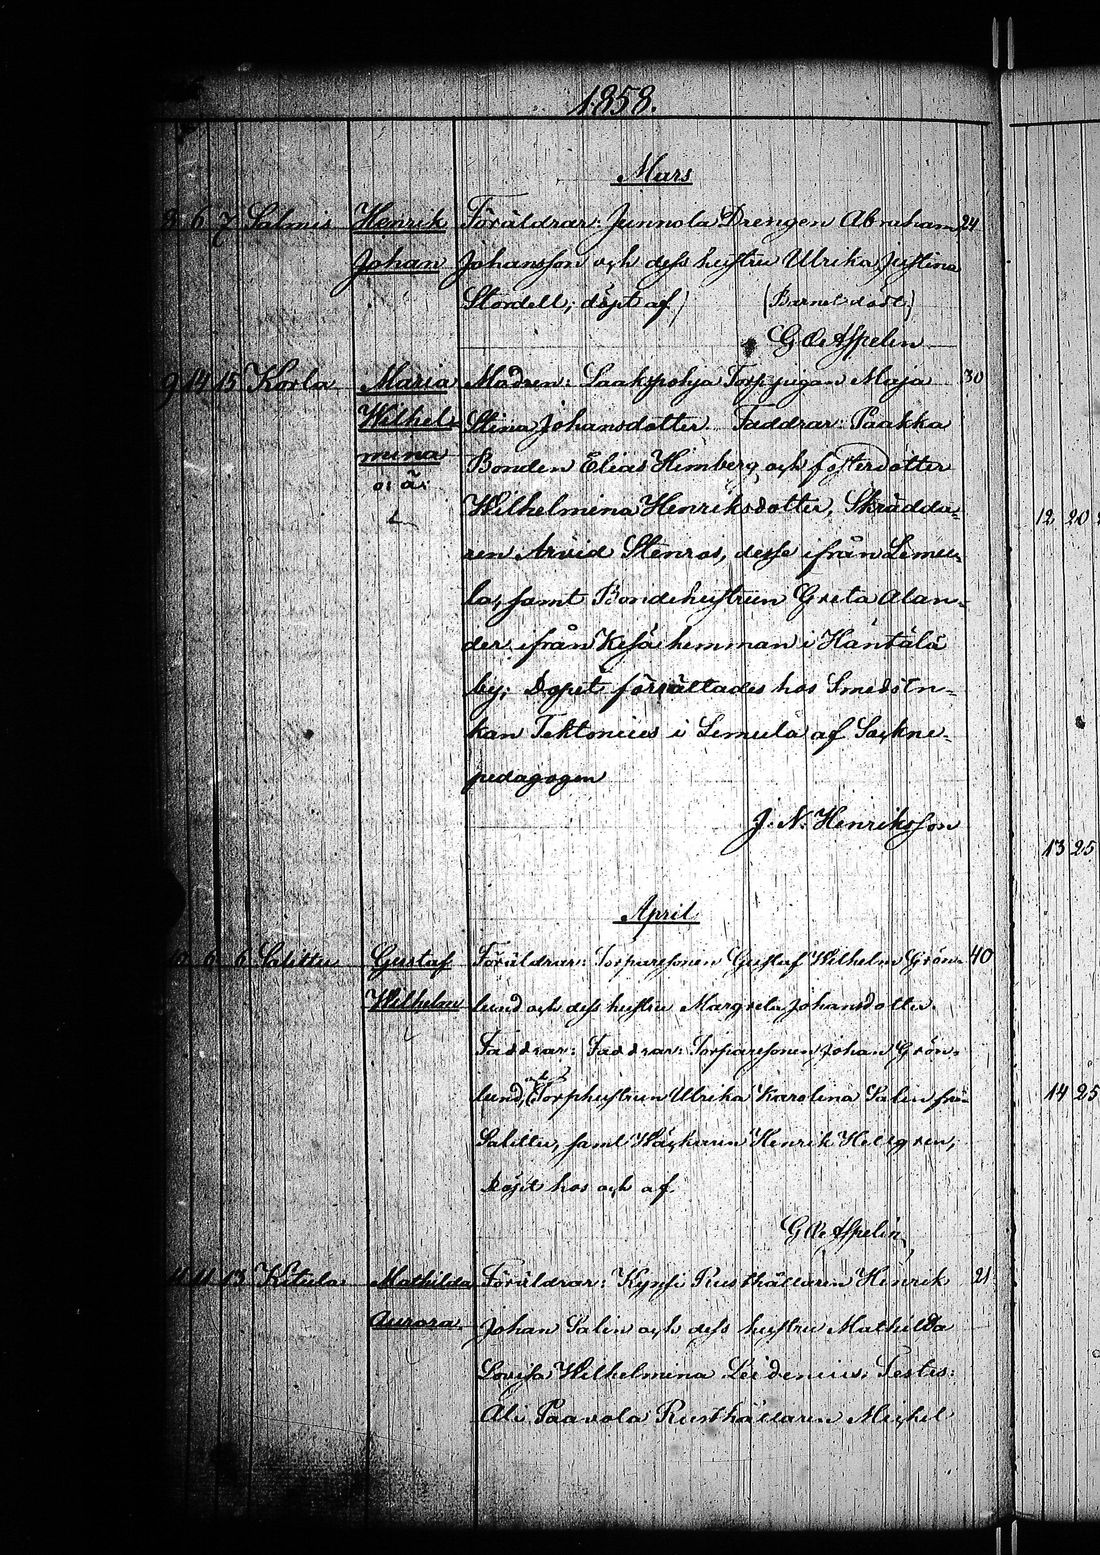 1858.
Mars
6 7 Salmis Henrik Föräldrar: Junnola Drengen Abraham 24
Johan Johansson och dess hustru Ulrika Justina
Stordell; döpt af (Barnet dödt.)
G. Aspelin
9 14 15 Korla Maria Modren: Laakspohja Torppigan Maja 30
Wilhel- Stina Johansdotter. Faddrar: Paakka
mina Bonden Elias Himberg och fosterdotter
o: ä: Wilhelmina Henriksdotter, Skrädda-
ren Arvid Stenros, desse ifrån Lemu-
la, samt Bondehustrun Greta Alan-
der ifrån Kesä hemman i Häntälä
by; Dopet förrättades hos Smeds
kan Tektonius i Lemula af Sockne-
pedagogen
J. N. Henriksson
April
6 6 Salittu Gustaf Föräldrar: Torparesonen Gustaf Wilhelm Grön- 40
Wilhelm lund och dess hustru Margreta Johansdotter.
Faddrar: Faddrar: Torparesonen Johan Grön-
lund, Torphustrun Ulrika Karolina Salin från
Salittu, samt Henrik Hellgren,
Döpt hos och af
G. Aspelin
11 11 13 Kitula Mathilda Föräldrar: Kynsi Rusthållaren Hinrik 21
Aurora. Johan Salin och dess hustru Mathilda
Lovisa Wilhelmina Leidenius; Testes:
Ali Paavola Rusthållaren Michel
12 20
13 25
14 25